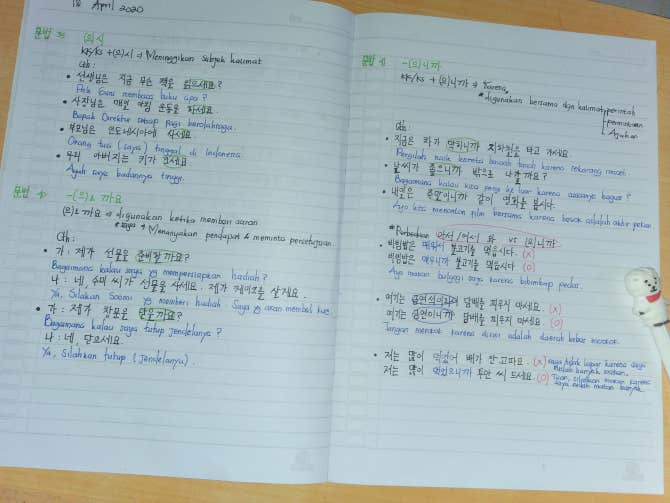 18 April 2020
문법 3) (으)시
KK/KS + (으)시 → Meninggikan subjek kalimat
Cth :
• 선생님은 지금 무슨 책을 읽으세요?
Pak Guru membaca buku apa?
• 사장님은 매일 아침 운동을 하세요.
Bapak Direktur setiap pagi berolahraga.
• 부모님은 인도네시아에 사세요.
Orang tua (saya) tinggal di Indonesia.
• 우리 아버지는 키가 크세요.
Ayah saya badannya tinggi.
문법 4) -(으)ㄹ까요
(으)ㄹ까요 → digunakan ketika memberi saran
Menanyakan pendapat & meminta persetujuan.
Cth :
• 가 : 제가 선물을 준비할까요?
Bagaimana kalau saya yg mempersiapkan hadiah?
나 : 네, 수미 씨가 선물을 사세요. 제가 케이크를 살게요.
Ya, Silakan Soomi yg memberi hadiah. Saya yg akan membeli kue.
• 가 : 제가 창문을 닫을까요?
Bagaimana kalau saya tutup jendelanya?
나 : 네, 닫으세요.
Ya, silahkan tutup (jendelanya).
문법 -(으)니까
KK/KS + (으)니까 → Karena
* digunakan bersama dgn kalimat perintah
permintaan
Ajakan
Cth :
• 지금은 차가 막히니까 지하철을 타고 가세요.
Pergilah naik kereta bawah tanah karena sekarang macet.
• 날씨가 좋으니까 밖으로 나갈까요?
Bagaimana kalau kita pergi ke luar karena cuacanya bagus?
• 내일은 주말이니까 같이 영화를 봅시다.
Ayo kita menonton film bersama karena besok adalah akhir pekan
* Perbedaan 아서/어서 와 vs (으)니까
• 비빔밥은 매워서 불고기를 먹읍시다. (x)
비빔밥은 매우니까 불고기를 먹읍시다 (o)
Ayo makan bulgogi saja karena bibimbap pedas.
• 여기는 금연석이라서 담배를 피우지 마세요. (x)
여기는 금연석이니까 담배를 피우지 마세요. (o)
Jangan merokok karena disini adalah daerah bebas merokok.
• 저는 많이 먹어서 배가 안 고파요. (x) saya tidak lapar karena saya sudah banyak makan.
저는 많이 먹었으니까 투안 씨 드세요. (o) Tuan, silahkan makan karena saya sudah makan banyak.